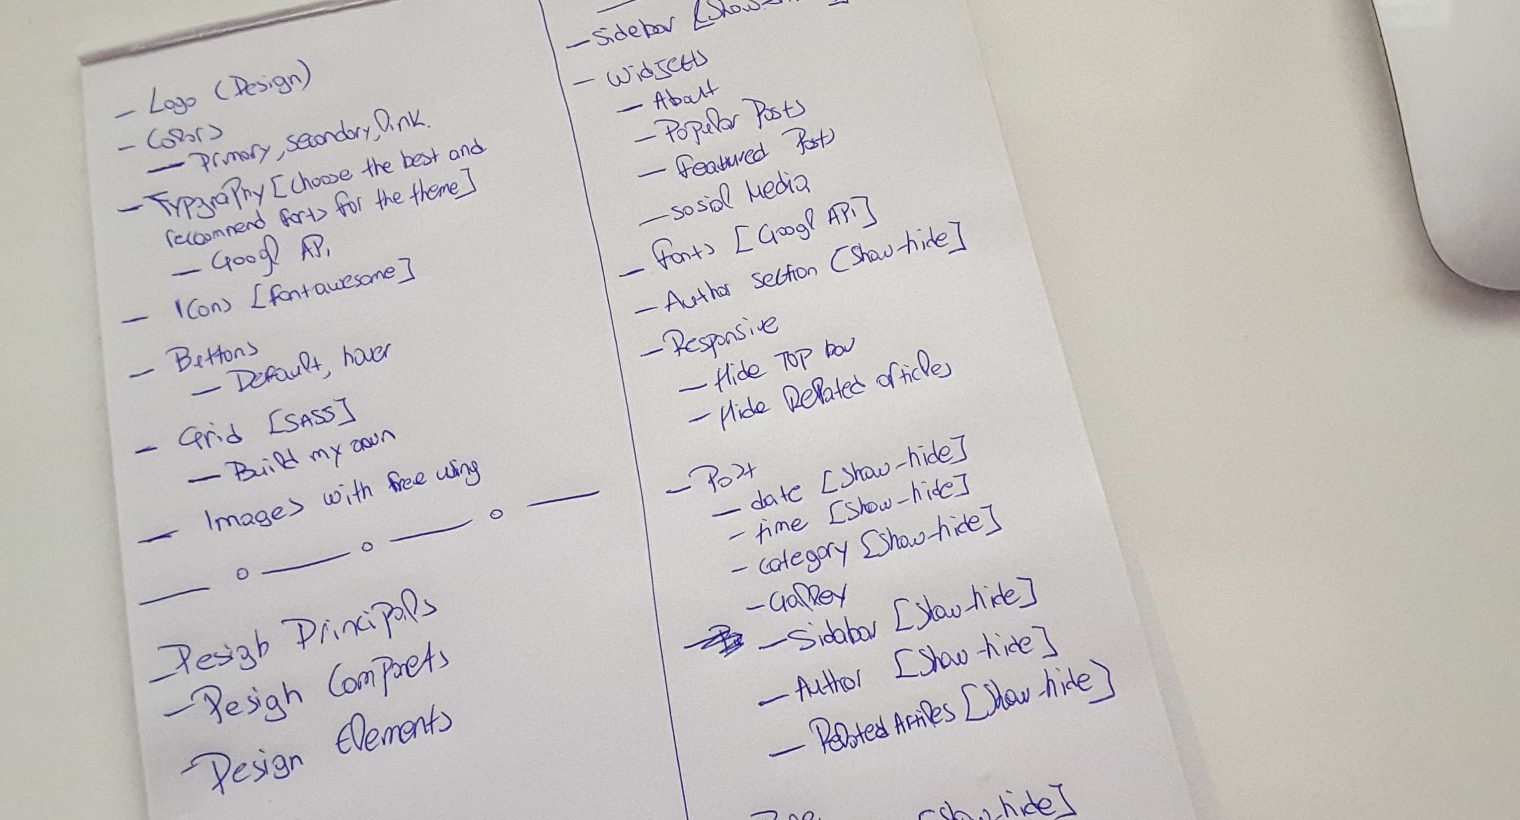 - Logo (Design)
- Colors
- Primary, secondary, link.
- Typgraphy [Choose the best and
recommend fonts for the theme]
- Googl API
- Icons [fontawesome]
- Buttons
- Default, hover
- Grid [SASS]
- Build my own
- Images with free using
- Design Principals
- Design
- Design Elements
- Sidebar [Show-hide]
- Widgets
- About
- Popular Posts
- Featured Posts
- Sosial Media
- Fonts [Googl API]
- Author section [Show-hide]
- Responsive
- Hide Top bar
- Hide Related articles
- Post
- date [Show-hide]
- time [Show-hide]
- category [Show-hide]
- Sidabar [Show-hide]
- Author [Show-hide]
- Related [Show-hide]
[Show-hide]